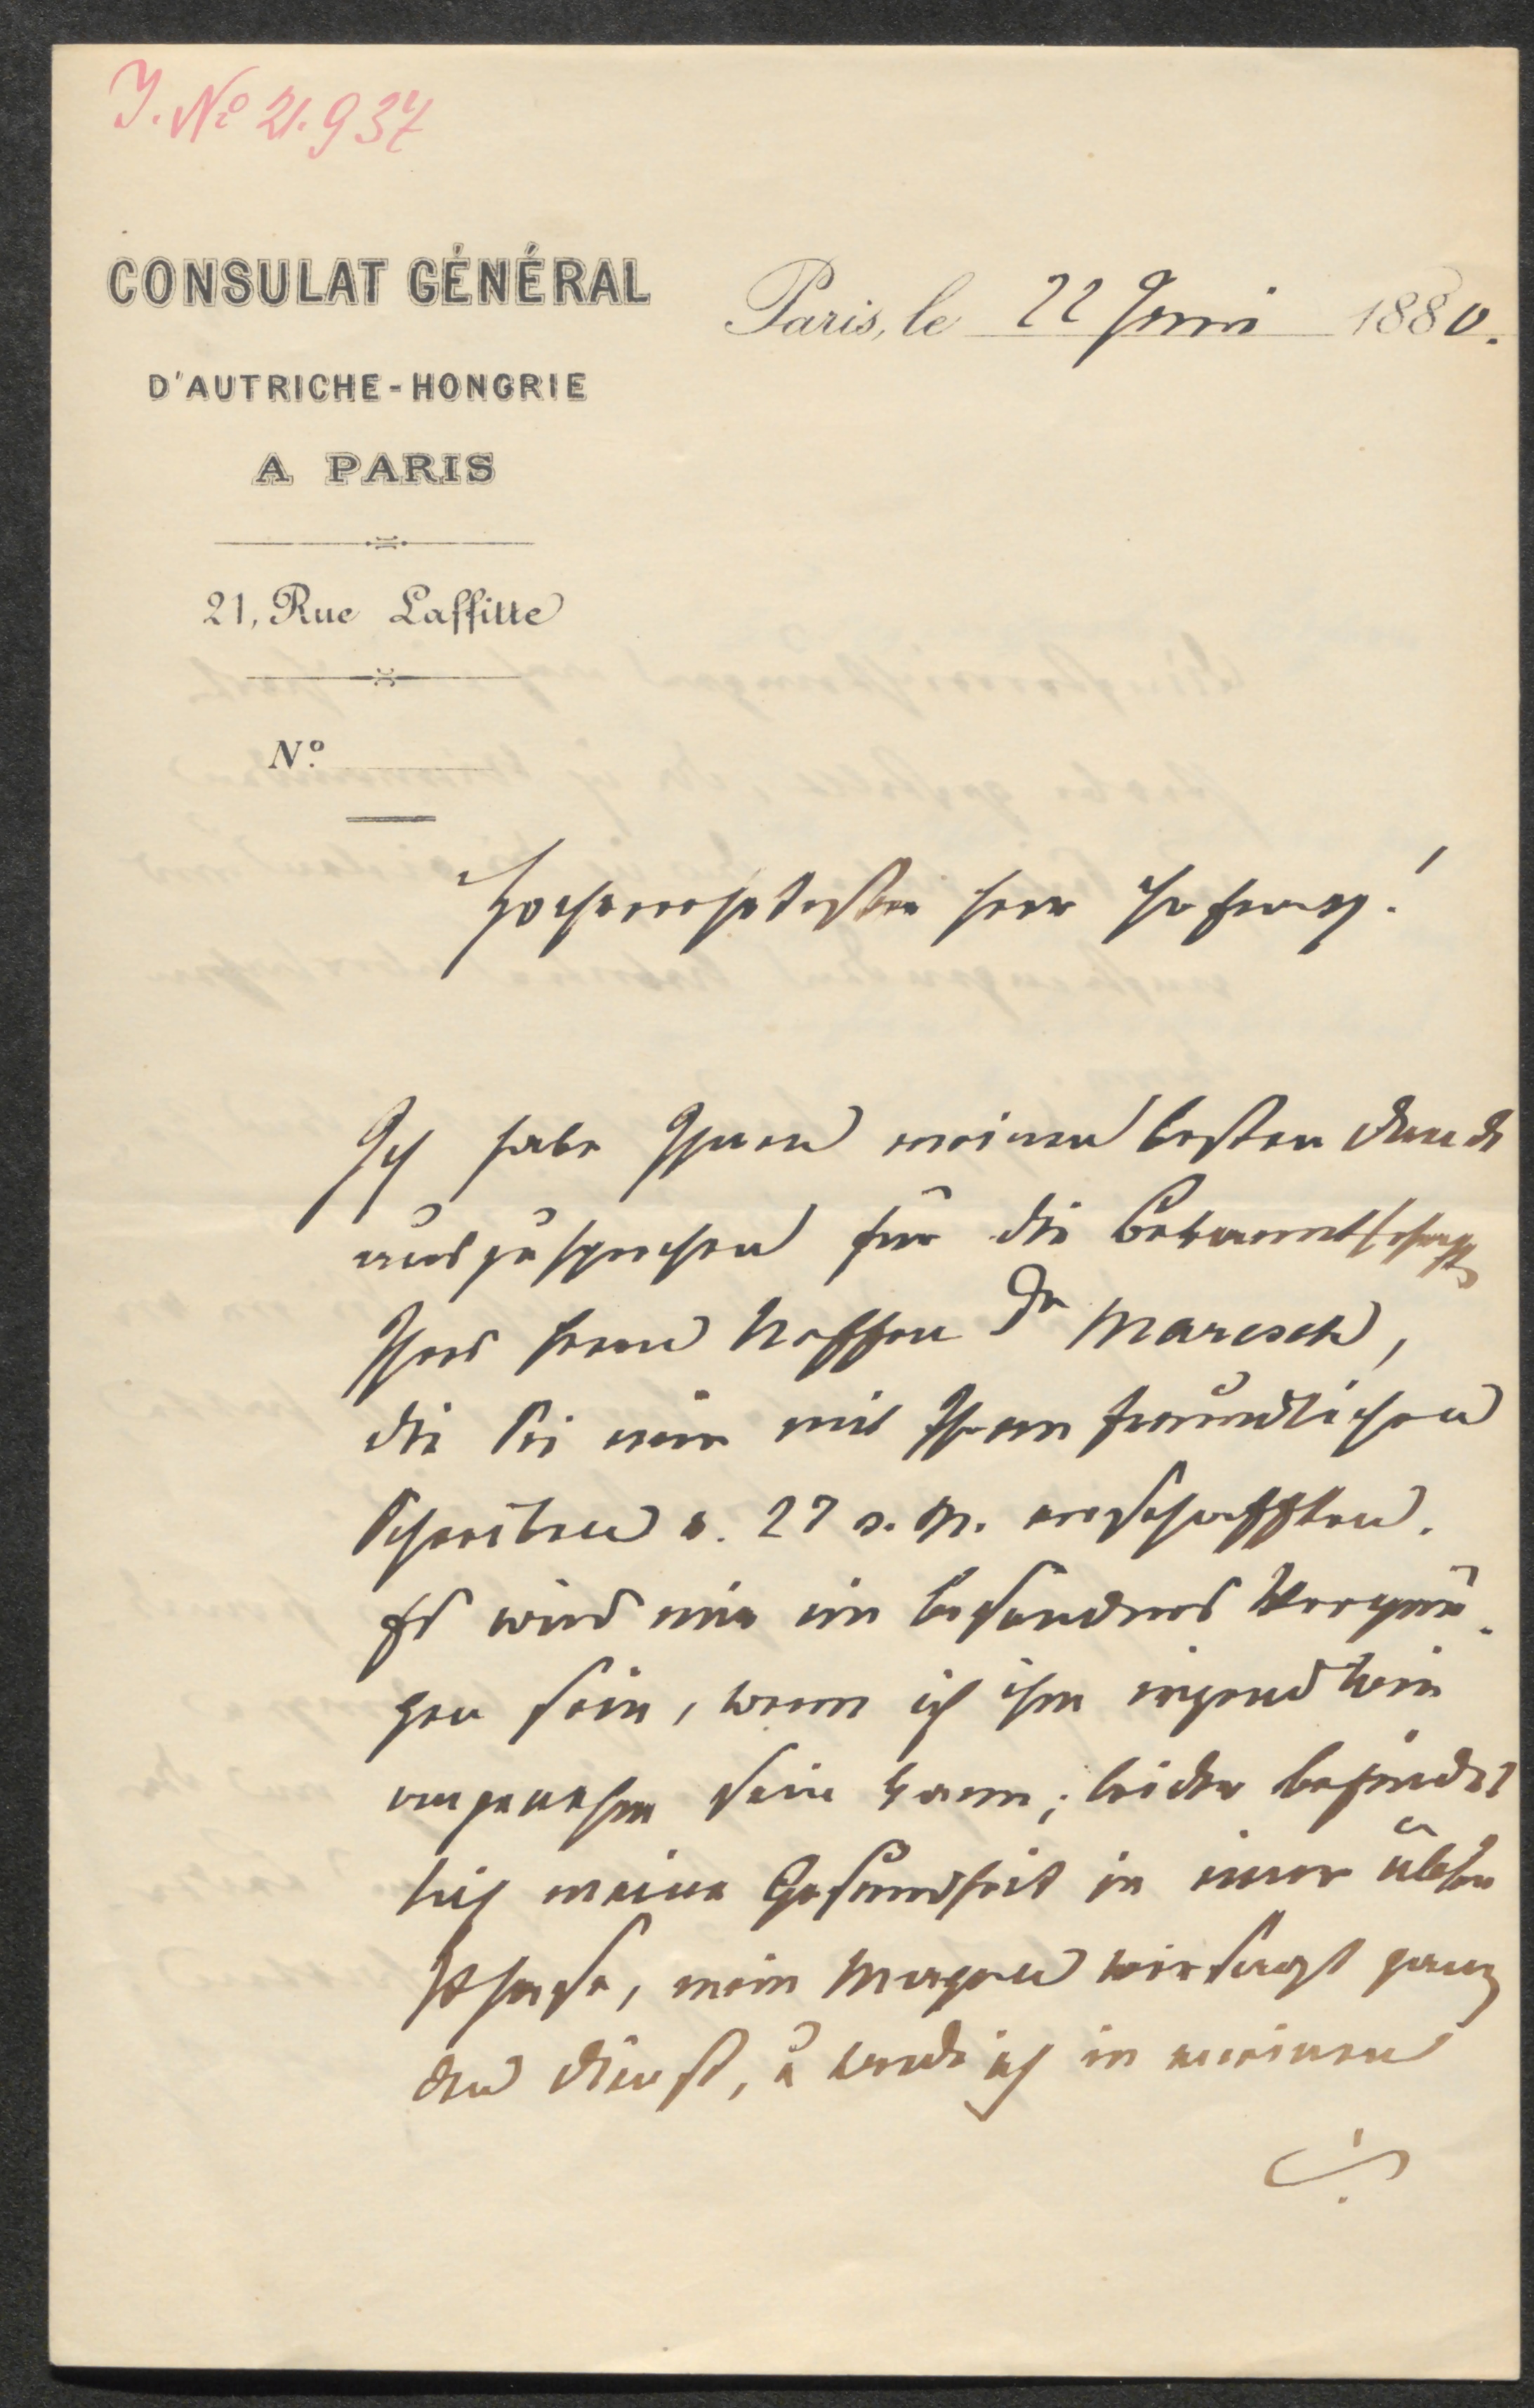 J. No 21.937
CONSULAT GÉNÉRAL
D'AUTRICHE-HONGRIE
A PARIS
21, Rue Laffitte
No.
Paris, le 22 Juni 1880.
Hochverehrtester Herr
Ich habe Ihnen meinen besten Dank
auszusprechen für die Bekanntschaft
Ihres Herrn Neffen Dr Maresch,
die Sie mir mit Ihrem freundlichen
Schreiben v. 27 v. M. verschafften.
Es wird mir ein besonderes Vergnü-
gen sein, wenn ich ihm irgendwie
angenehm sein kann; leider befindet
sich meine Gesundheit in einer üblen
Phase, mein Magen versagt ganz
den Dienst, u werde ich in meinen
./.